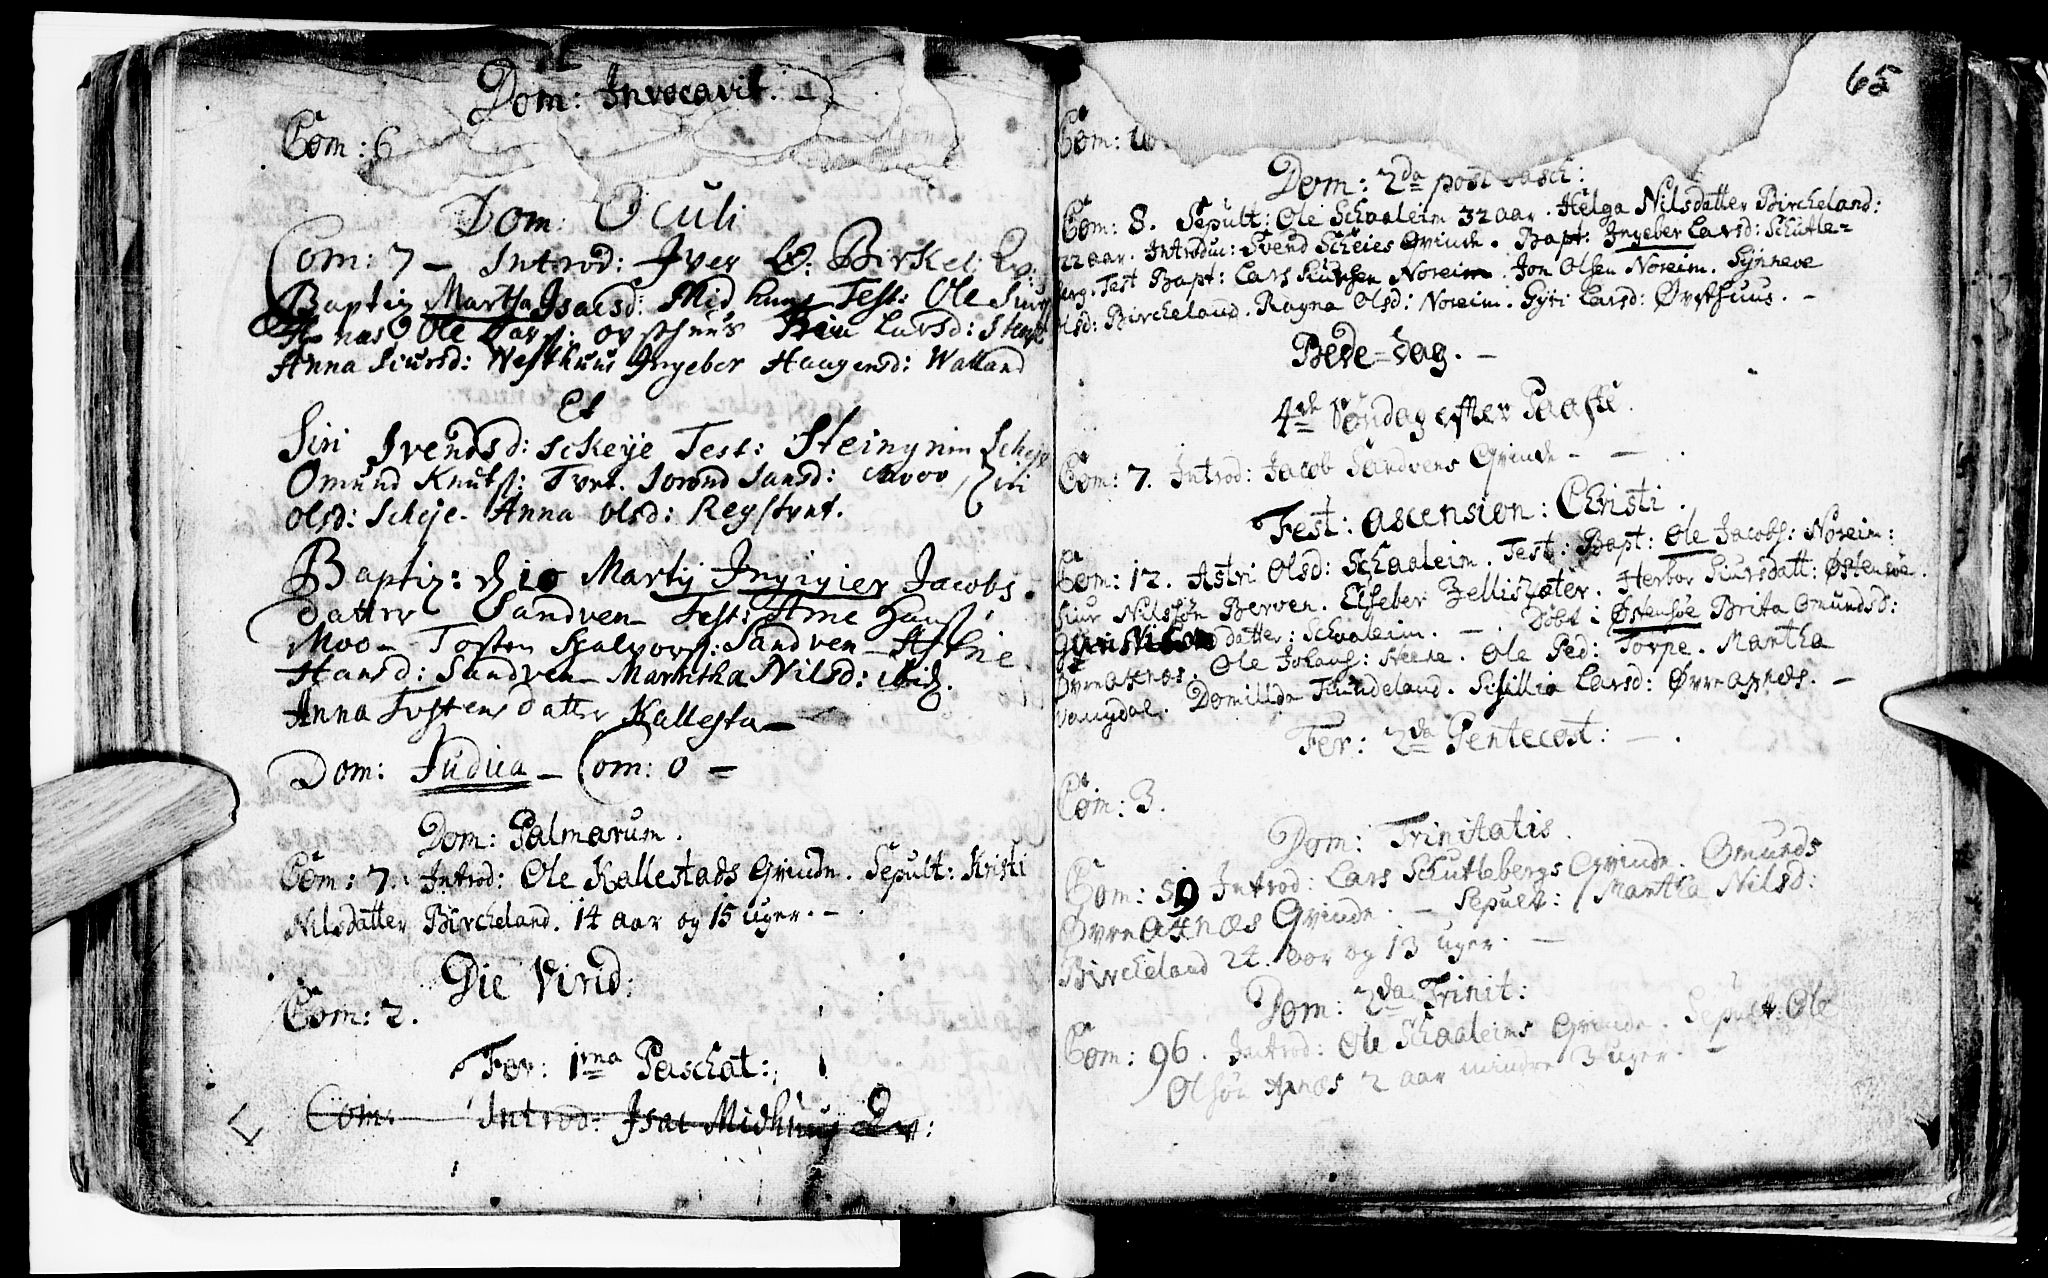 Dom: Invocavit.
Com: 6
Dom: Oculi
Com: 7 – Introd: Iver Birkel: Qv:
Baptiz Martha Isacsd: Midhuus Test: Ole Siurs
Ole Lars: ovsthuus Larsd:
Anna Siursd: Westhuus Ingebor Haagensd: Walland
Et
Siri Svendsd: Sckeije Test: Steingrim Scheje
Omund Knuts: Tvet. Jorond Jansd: Mooo, Siri
Olsd: Scheje. Anna Olsd: Reystvet.
Baptiz: d 10 Martij Ingigier Jacobs
datter Sandven Test: Arne Hans:
Moo – Tosten Hjalvors: Sandven –
Hansd: Sandven Marritha Nilsd: ibid.
Anna Tostens datter Kallesta –
Dom: Judica – Com: 0 –
Dom: Palmarum.
Com: 7. Introd: Ole Kallestads Qvinde. Sepult: Kristi
Nilsdatter Bircheland. 14 aar og 15 uger. –
Die Virid:
Com: 2.
Fer: 1ma Paschat:
Com: Introd: Isac Midhuus Qv:
65
Com: 10
Dom: 2da post Pasch:
Com: 8. Sepult: Ole Schaaleim 32 aar. Helga Nilsdatter Bircheland:
22 aar. Introduc: Svend Scheies Qvinde. Bapt: Ingeber Larsd: Schutle=
berg. Test Bapt: Lars Knutsen Noreim. Jon Olsen Noreim. Synneve
Olsd: Bircheland. Ragna Olsd: Noreim. Gyri Larsd: Øvsthuus. –
Bede=Dag. –
4de Søndag efter Paaske.
Com: 7. Introd: Jacob Sandvens Qvinde – –
Fest: ascension: Christi.
Com: 12. Astri Olsd: Schaaleim. Test: Bapt: Ole Jacobs: Noreim:
Siur Nilssøn Berven. Elseber Herbor Siursdatt: Østensøe.
datter: Schaaleim. – Døbt i Østensøe Brita Omundsd:
Øvre Axnes. Ole Johans: Ole Ped: Torpe. Martha
Vangdal. Domilda Sisillia Larsd: Øvre Axnæs. –
Fer: 2da Pentecost: – .
Com: 3.
Dom: Trinitatis.
Com: 59 Introd: Lars Schutlebergs Qvinde. Omunds
Øvre Axnæs Qvinde. – Sepult: Martha Nilsd:
Bircheland 24. aar og 13 uger. –
Dom: 2da Trinit:
Com: 96. Introd: Ole Schaaleims Qvinde. Sepult. Ole
Olsøn Axnæs 2 aar mindre 3 uger. –